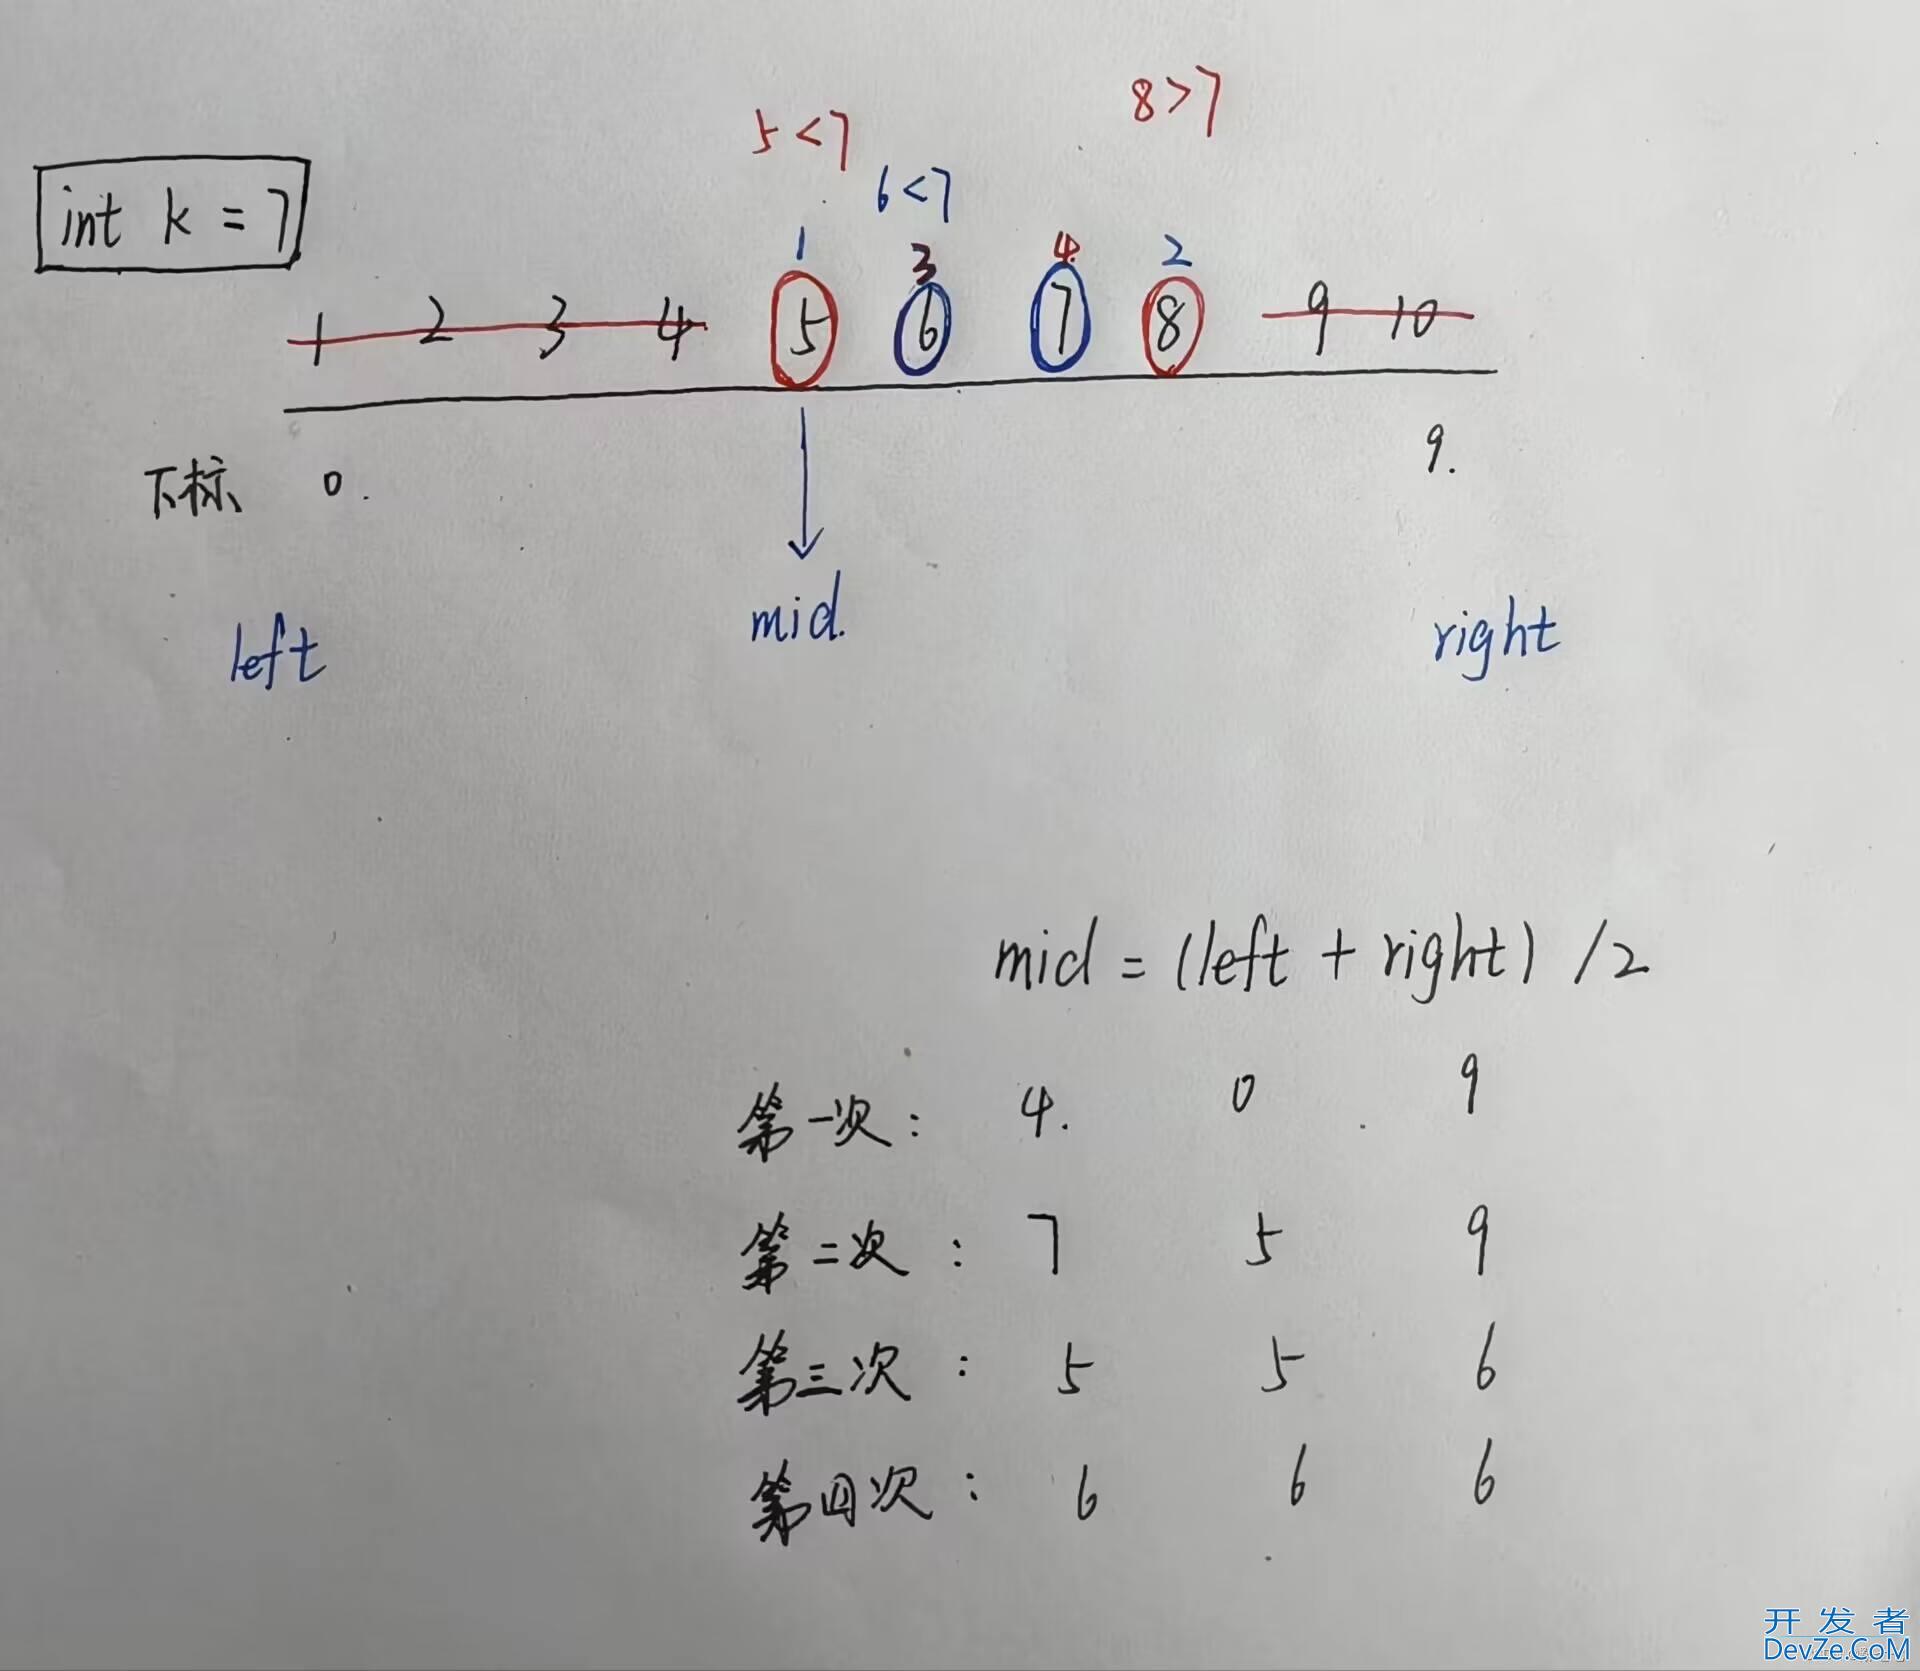 8>7
5<7
6<7
int k = 7
1 3 4. 2
1 2 3 4 5 6 7 8 9 10
9.
下标 0.
mid.
left right
mid = (left + right) /2
第一次: 4. 0 9
第二次: 7 5 9
第三次: 5 5 6
第四次: 6 6 6
开发者
DevZe.CoM